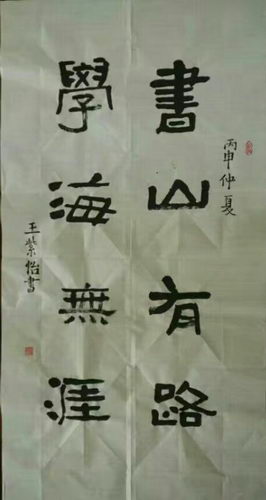 丙申仲夏
書山有路
學海無涯
王紫怡書